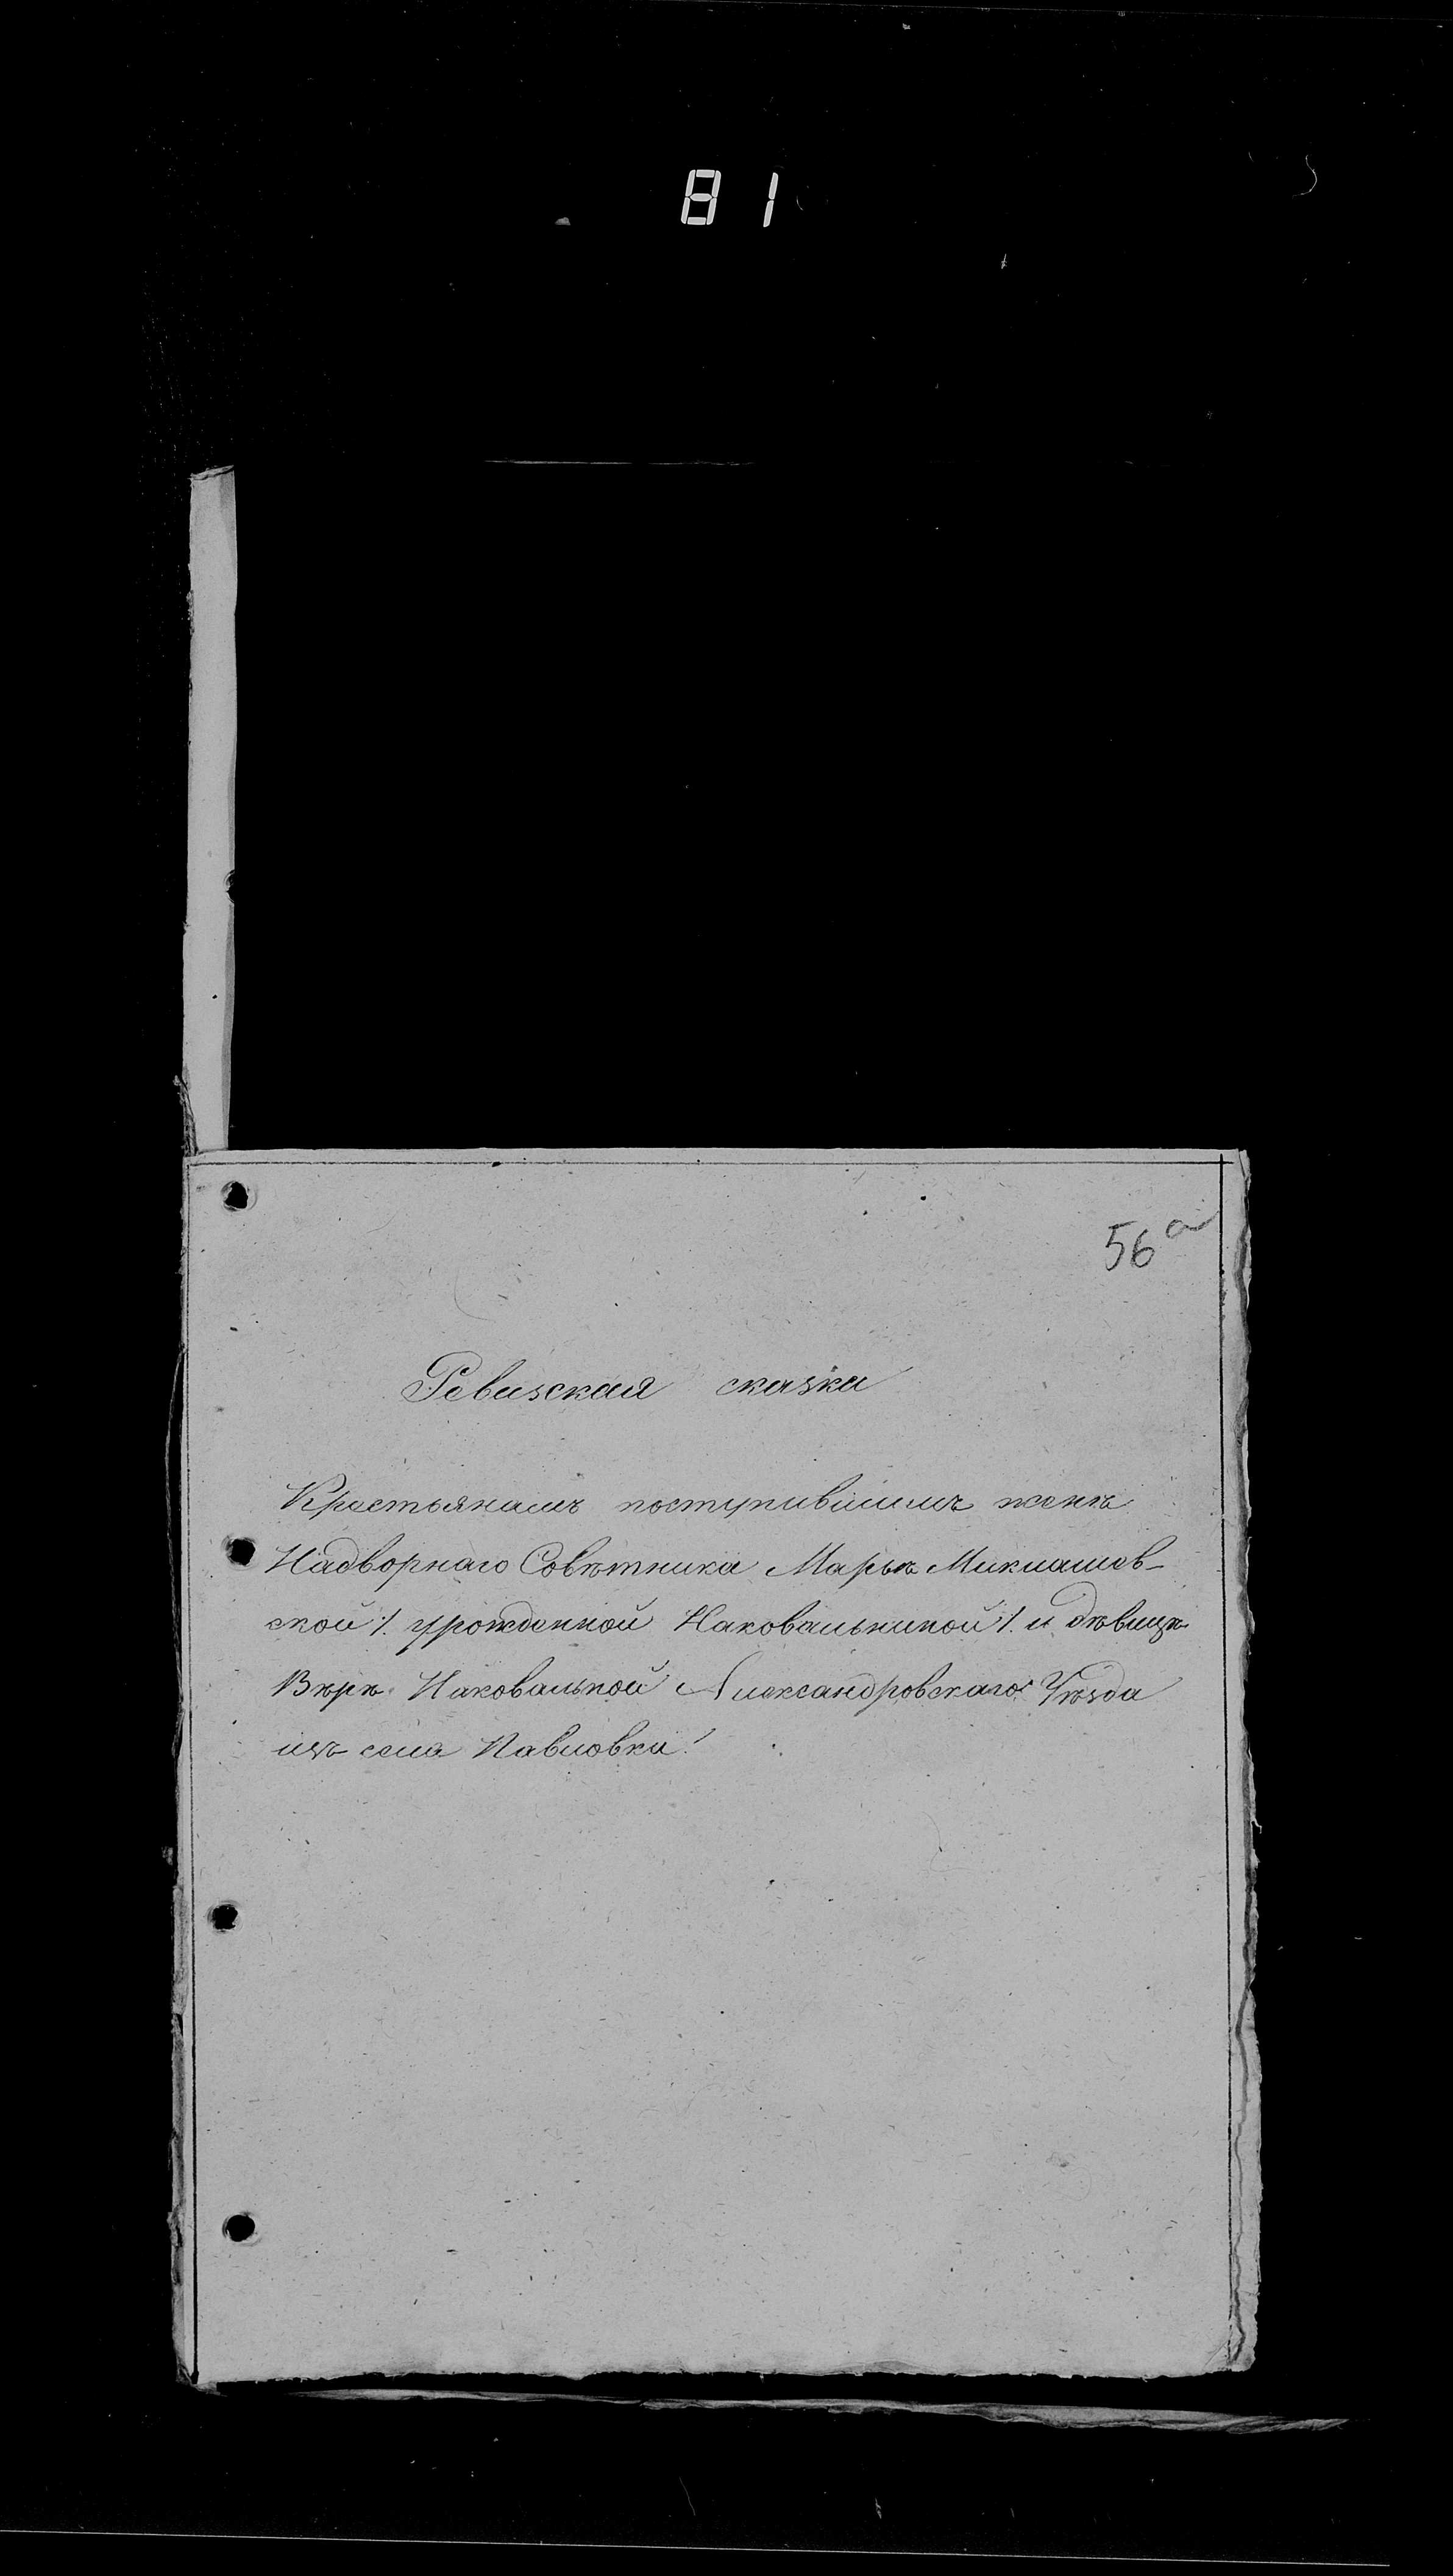 81
56 а
Ревизская сказка
Крестьянамъ поступившимъ женѣ
Надворнаго Совѣтника Марьѣ Миклашев-
ской /. урожденной Наковальниной /. и дѣвицѣ
Вѣрѣ Наковальной Александровскаго Уѣзда
изъ села Павловки